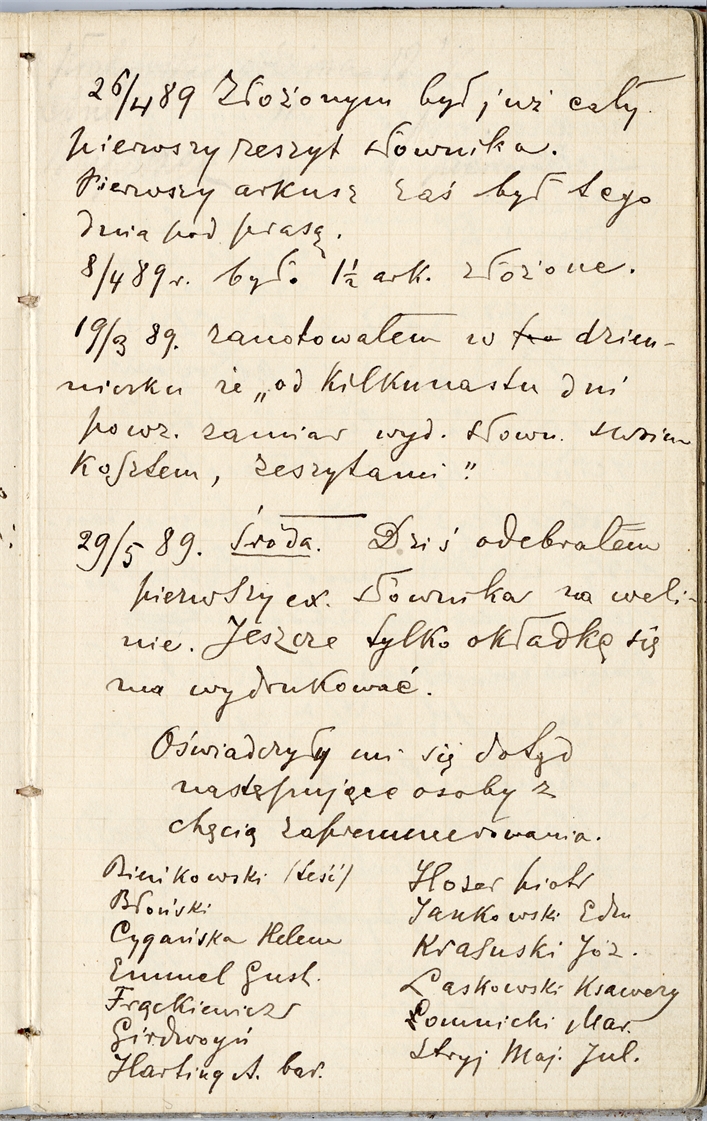 26/4 89 Złożonym był już cały
pierwszy zeszyt słownika.
Pierwszy arkusz zaś był tego
dnia pod prasą.
8/4 89 r. było 1½ ark. złożone.
19/3 89. zanotowałem w dzien-
niczku że „od kilkunastu dni
powz. zamiar wyd. słown. swoim
kosztem, zeszytami"
29/5 89. Środa. Dziś odebrałem
pierwszy ex. słownika na weli-
nie. Jeszcze tylko okładkę się
ma wydrukować.
Oświadczyły mi się dotąd
następujące osoby z
chęcią zaprenumerowania.
Bieńkowski (teść)
Błoński
Cygańska Helena
Emmel Gust.
Frąckiewicz
Girdwoyń
Harting A. bar.
Hozer Piotr
Jankowski Edm
Krasuski Józ.
Laskowski Ksawery
Łomnicki Mar.
Stryj Maj. Jul.